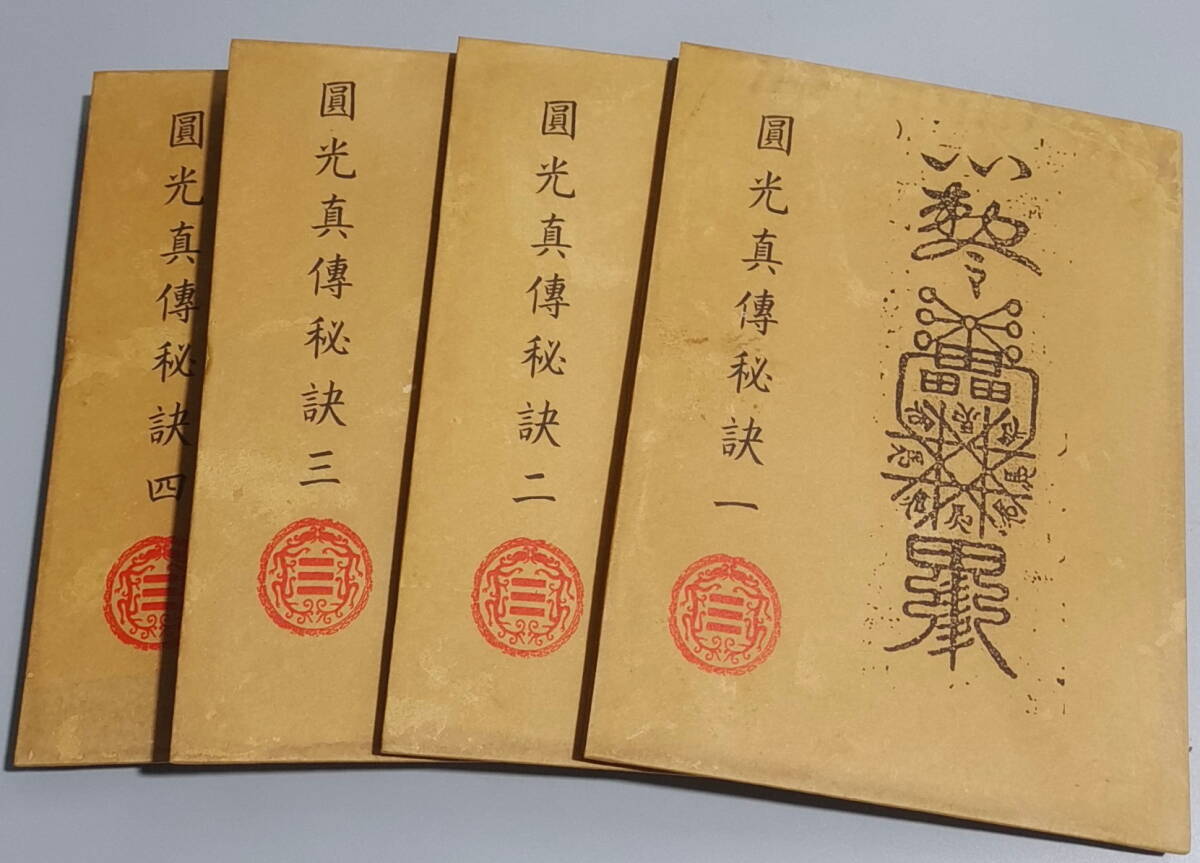 圓光真傳秘訣一
圓光真傳秘訣二
圓光真傳秘訣三
圓光真傳秘訣四